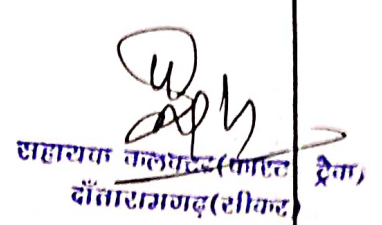 सहायक कलक्टर(फास्ट ट्रेक)
दाँतारामगढ़(सीकर)